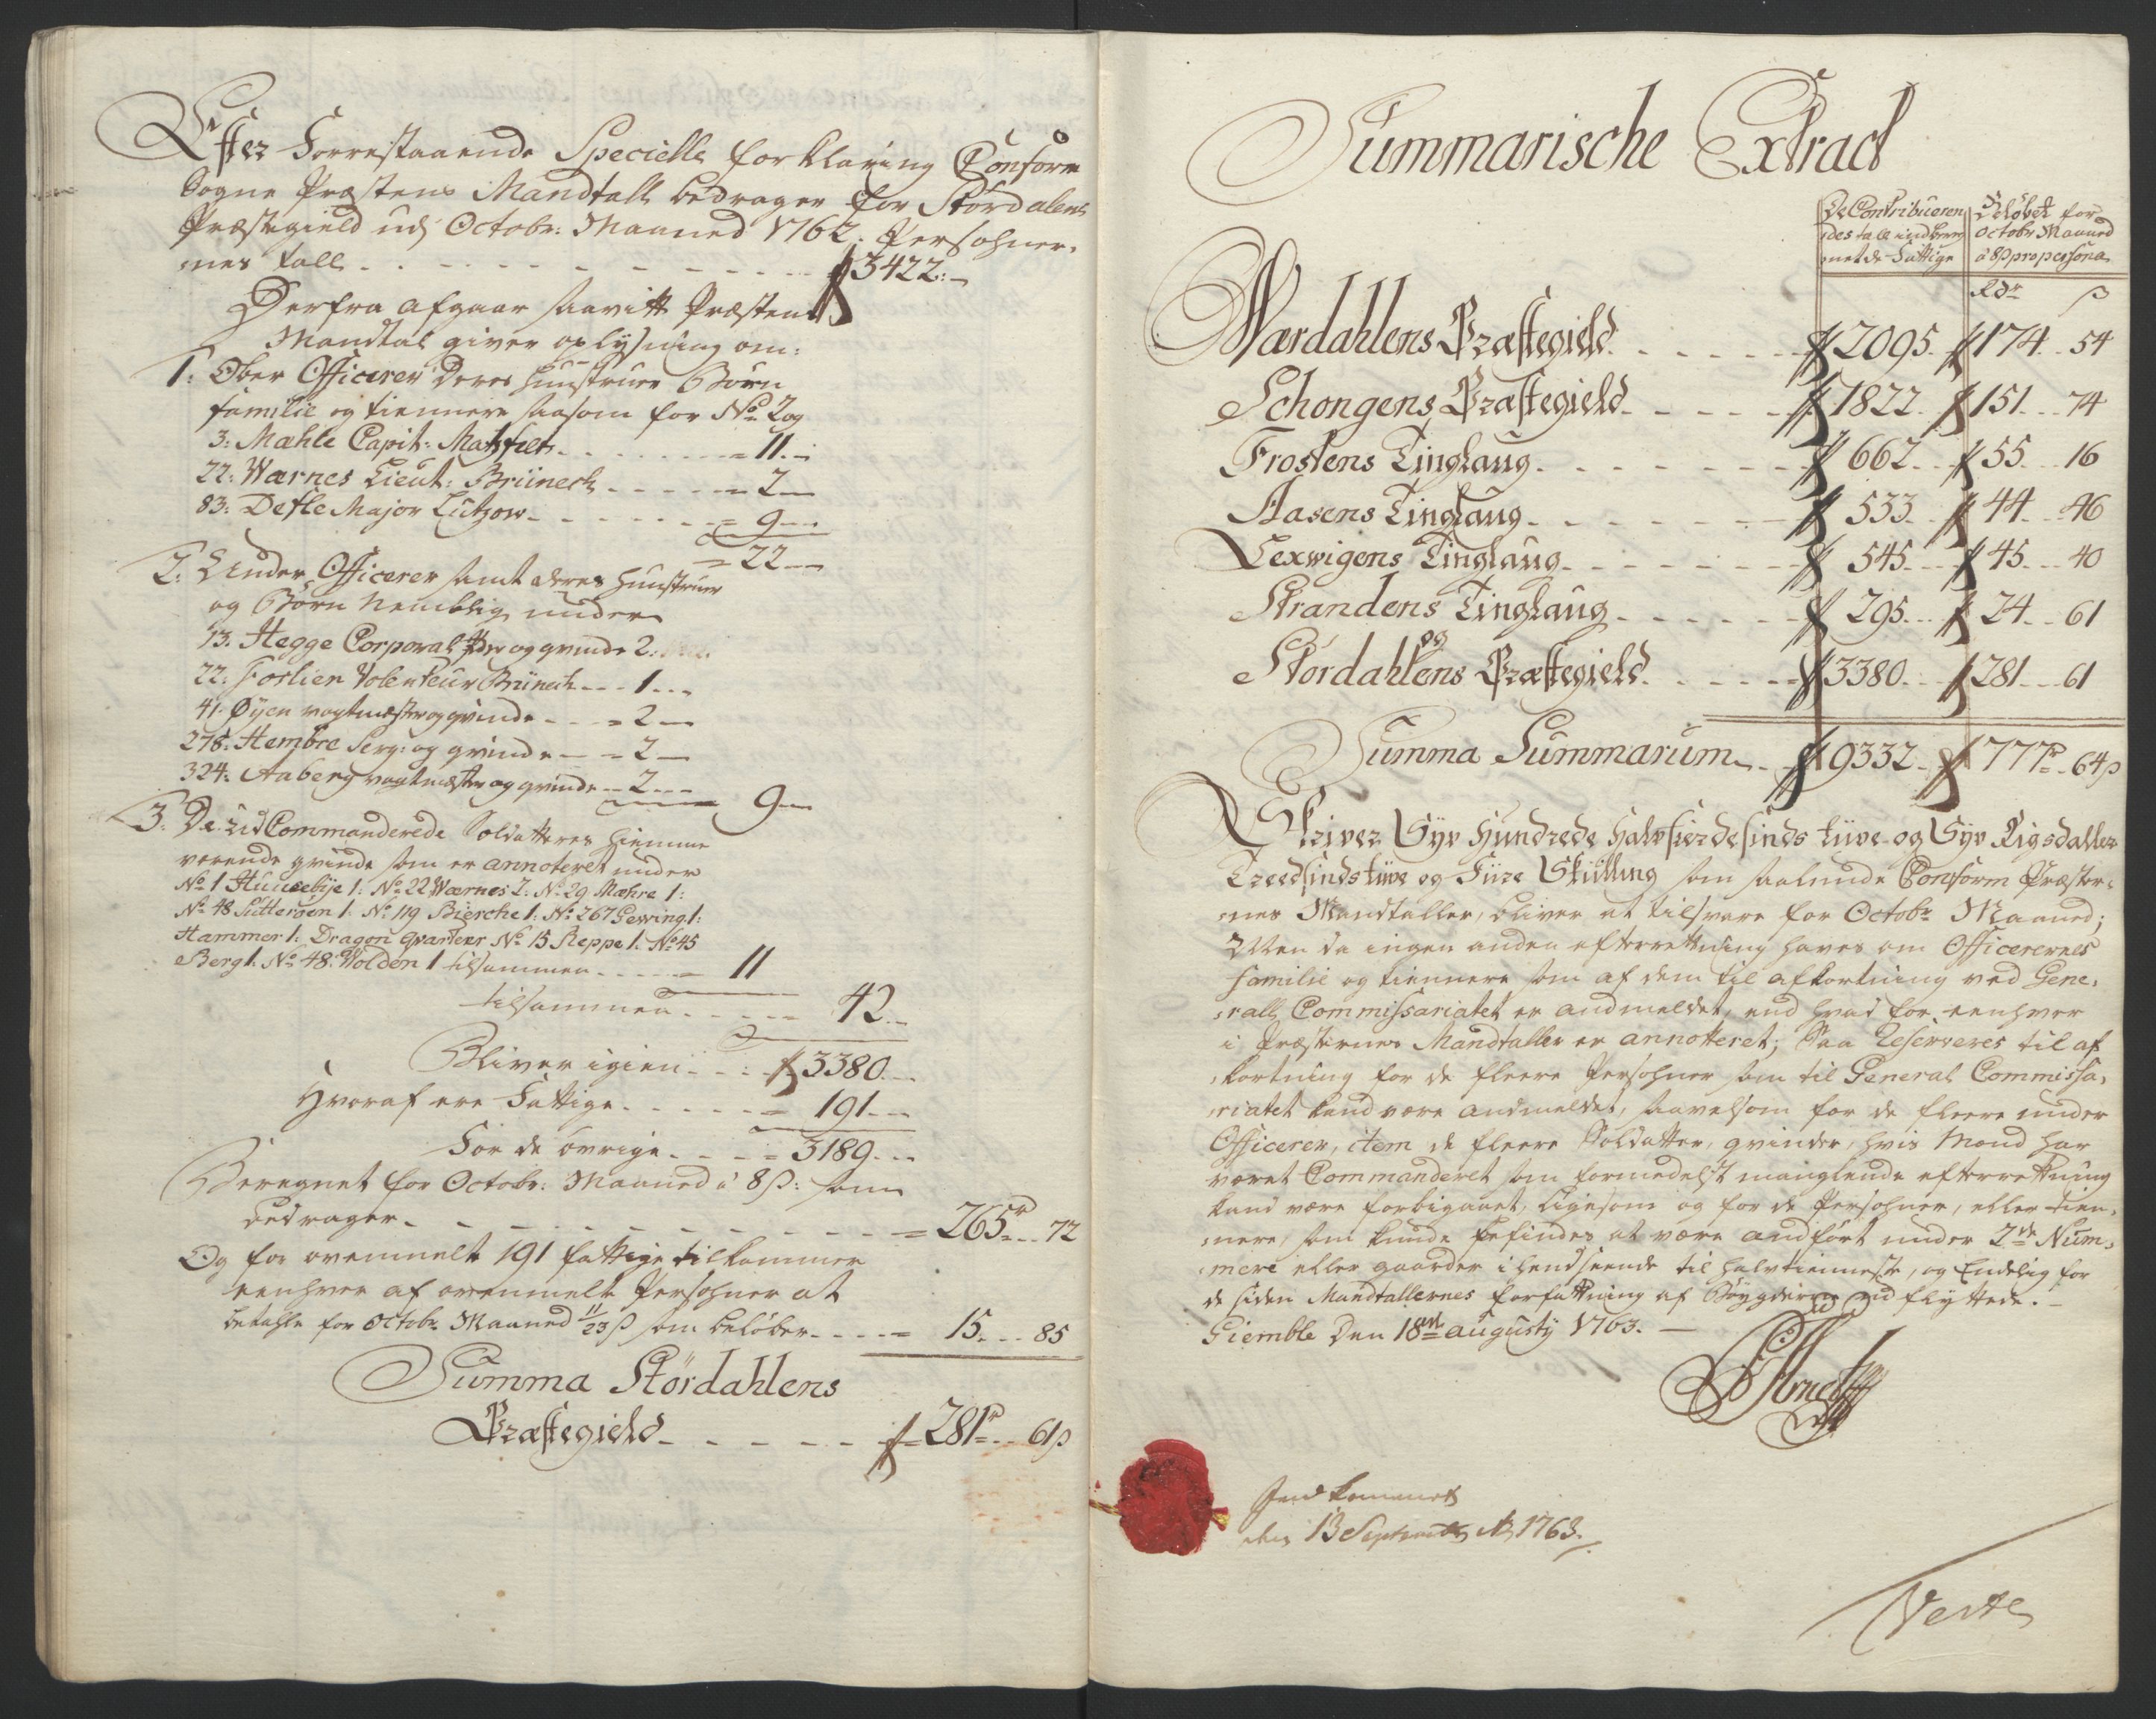 Efter Forrestaaende Specielle forklaring Conform
Sogne Præstens Mandtall bedrager for Stördalens
Præstegield udj Octobr: Maaned 1762. Persohner-
nes tall - - - 3422. -
Derfra afgaar saavitt Præstens
Mandtal giver oplysning om:
1: Ober Officerer Deres hunstruer Börn
familie og tiennere saasom for No 2 og
3: Mæhle Capit: Matzfelt - - - 11. -
22: Wærnes Lieut: Brüneck - - - 2 -
83: Defle Major Lützow - - - 9 -
22 -
2: Under Officerer samt deres hunstruer
og Börn nemblig under
13: Hegge Corporal og qvinde 2.
22: Forlien Volenteur Brüneck - - - 1 - -
41: Öyen vagtmæster og qvinde - - - 2 -
278: Hembre Serg: og qvinde - - 2 -
324: Aaberg vagtmæster og qvinde - - 2 - -
9 -
3: De ud Commanderede Soldatteres hiemme
værende qvinde som er annoteret under
No 1 Huusebye 1: No 22 Wærnes 2: No 29 Mæhre 1:
No 48 Sutterøen 1: No 119 Bierche 1: No 267 Gewing 1:
Hammer 1: Dragon Qvarteer No 15 Reppe 1: No 45
Berg 1: No 48: Wolden 1 tilsammen - - - 11
tilsammen - - - 42 -
Bliver igien - - - 3380. -
Hvoraf ere Fattige - - - 191 - -
For de övrige - - - 3189 - -
Beregnet for Octobr: Maaned á 8 ß: som
bedrager - - - 265 r - 72
Og for ovenmelte 191 fattige tilkommer
eenhver af ovenmelte Persohner at
betahle for Octobr Maaned 11/23 ß som belöber - - - 15 - - 85
Summa Stördahlens
Præstegield - - - 281 r - 61 ß
Summarische Extract
De Contribueren
des tall indbereg
net de Fattige
Belöbet for
Octobr Maaned
á 8 ß pro persona
Rdr ß
Wærdahlens Præstegield - - - 2095. 174 - 54
Schongens Præstegield - - - 1822. 151 - - 74
Frostens Tinglaug - - - 662 - 55 - - 16
Aasens Tinglaug - - - 533 - 44 - - 46
Lexwigens Tinglaug - - - 545 - 45 - - 40
Strandens Tinglaug - - - 295 - 24 - - 61
og
Stördahlens Præstegield - - - 3380 - 281 - - 61
Summa Summarum - - 9332 - 777 r - 64 ß
Skriver Syv Hundrede Halvfierdesinds tüve og Syv Rigsdaller
Treedsinds tüve og Fiire Skilling som saalunde Conform Præster-
nes Mandtaller, bliver at tilsvare for Octobr Maaned;
Men da ingen anden efterretning haves om Officerernes
Familie og tiennere som af dem til afkortning ved Gene-
rall Commissariatet er andmeldet, end hvad for eenhver
i Præsternes Mandtaller er annotteret; Saa Reserveres til af
kortning for de fleere Persohner som til General Commissa-
riatet kand være andmeldet, saavelsom for de fleere under
Officerer, item de fleere Soldatter, qvinder, hvis Mænd har
været Commanderet som formedelst manglende efterretning
kand være forbigaaet, ligesom og for de Persohner, eller tien-
nere, som kunde befindes at være andfört under 2de Num-
meri eller gaarder i hendseende til halvtienneste, og Endelig for
de siden Mandtallernes forfattning af Böygderne ud flyttede. -
Giemble Den 18de augusty 1763. -
Indkommet
den 13 Septembr Ao 1763.
Verte